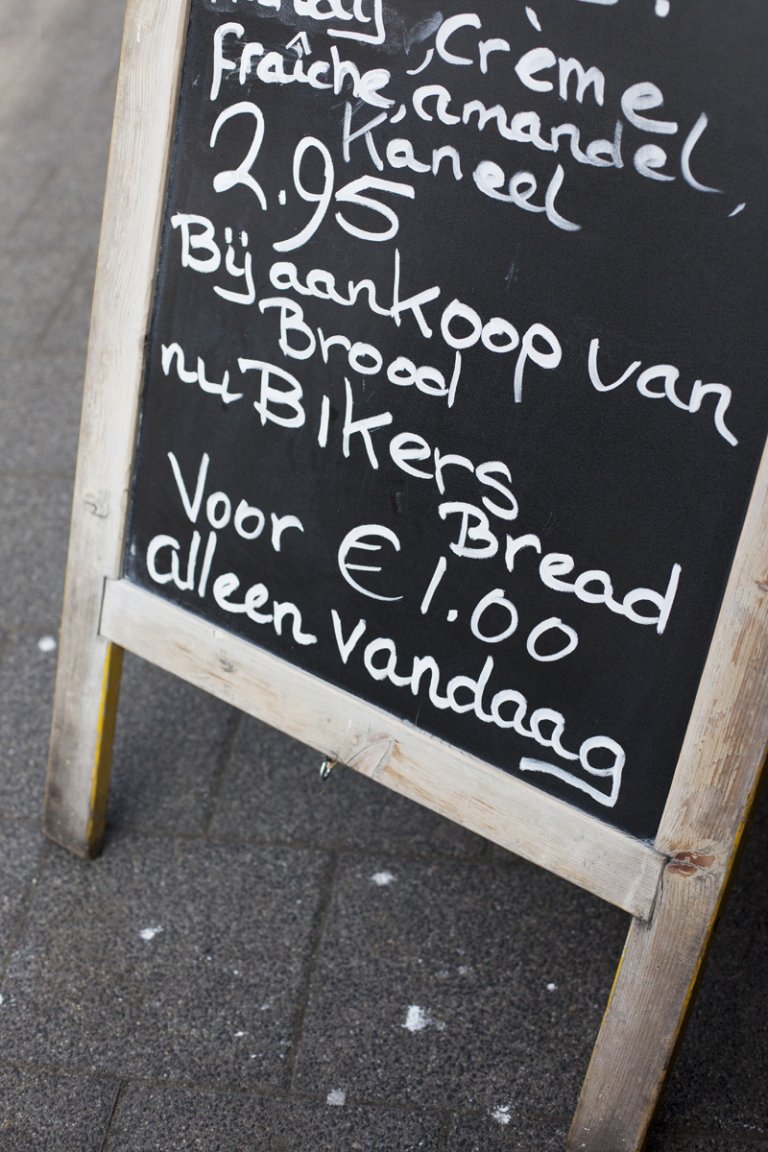 ,Crème
fraîche,amandel,
Kaneel
2.95
Bij aankoop van
Brood
nu BIkers
Bread
Voor € 1.00
alleen vandaag